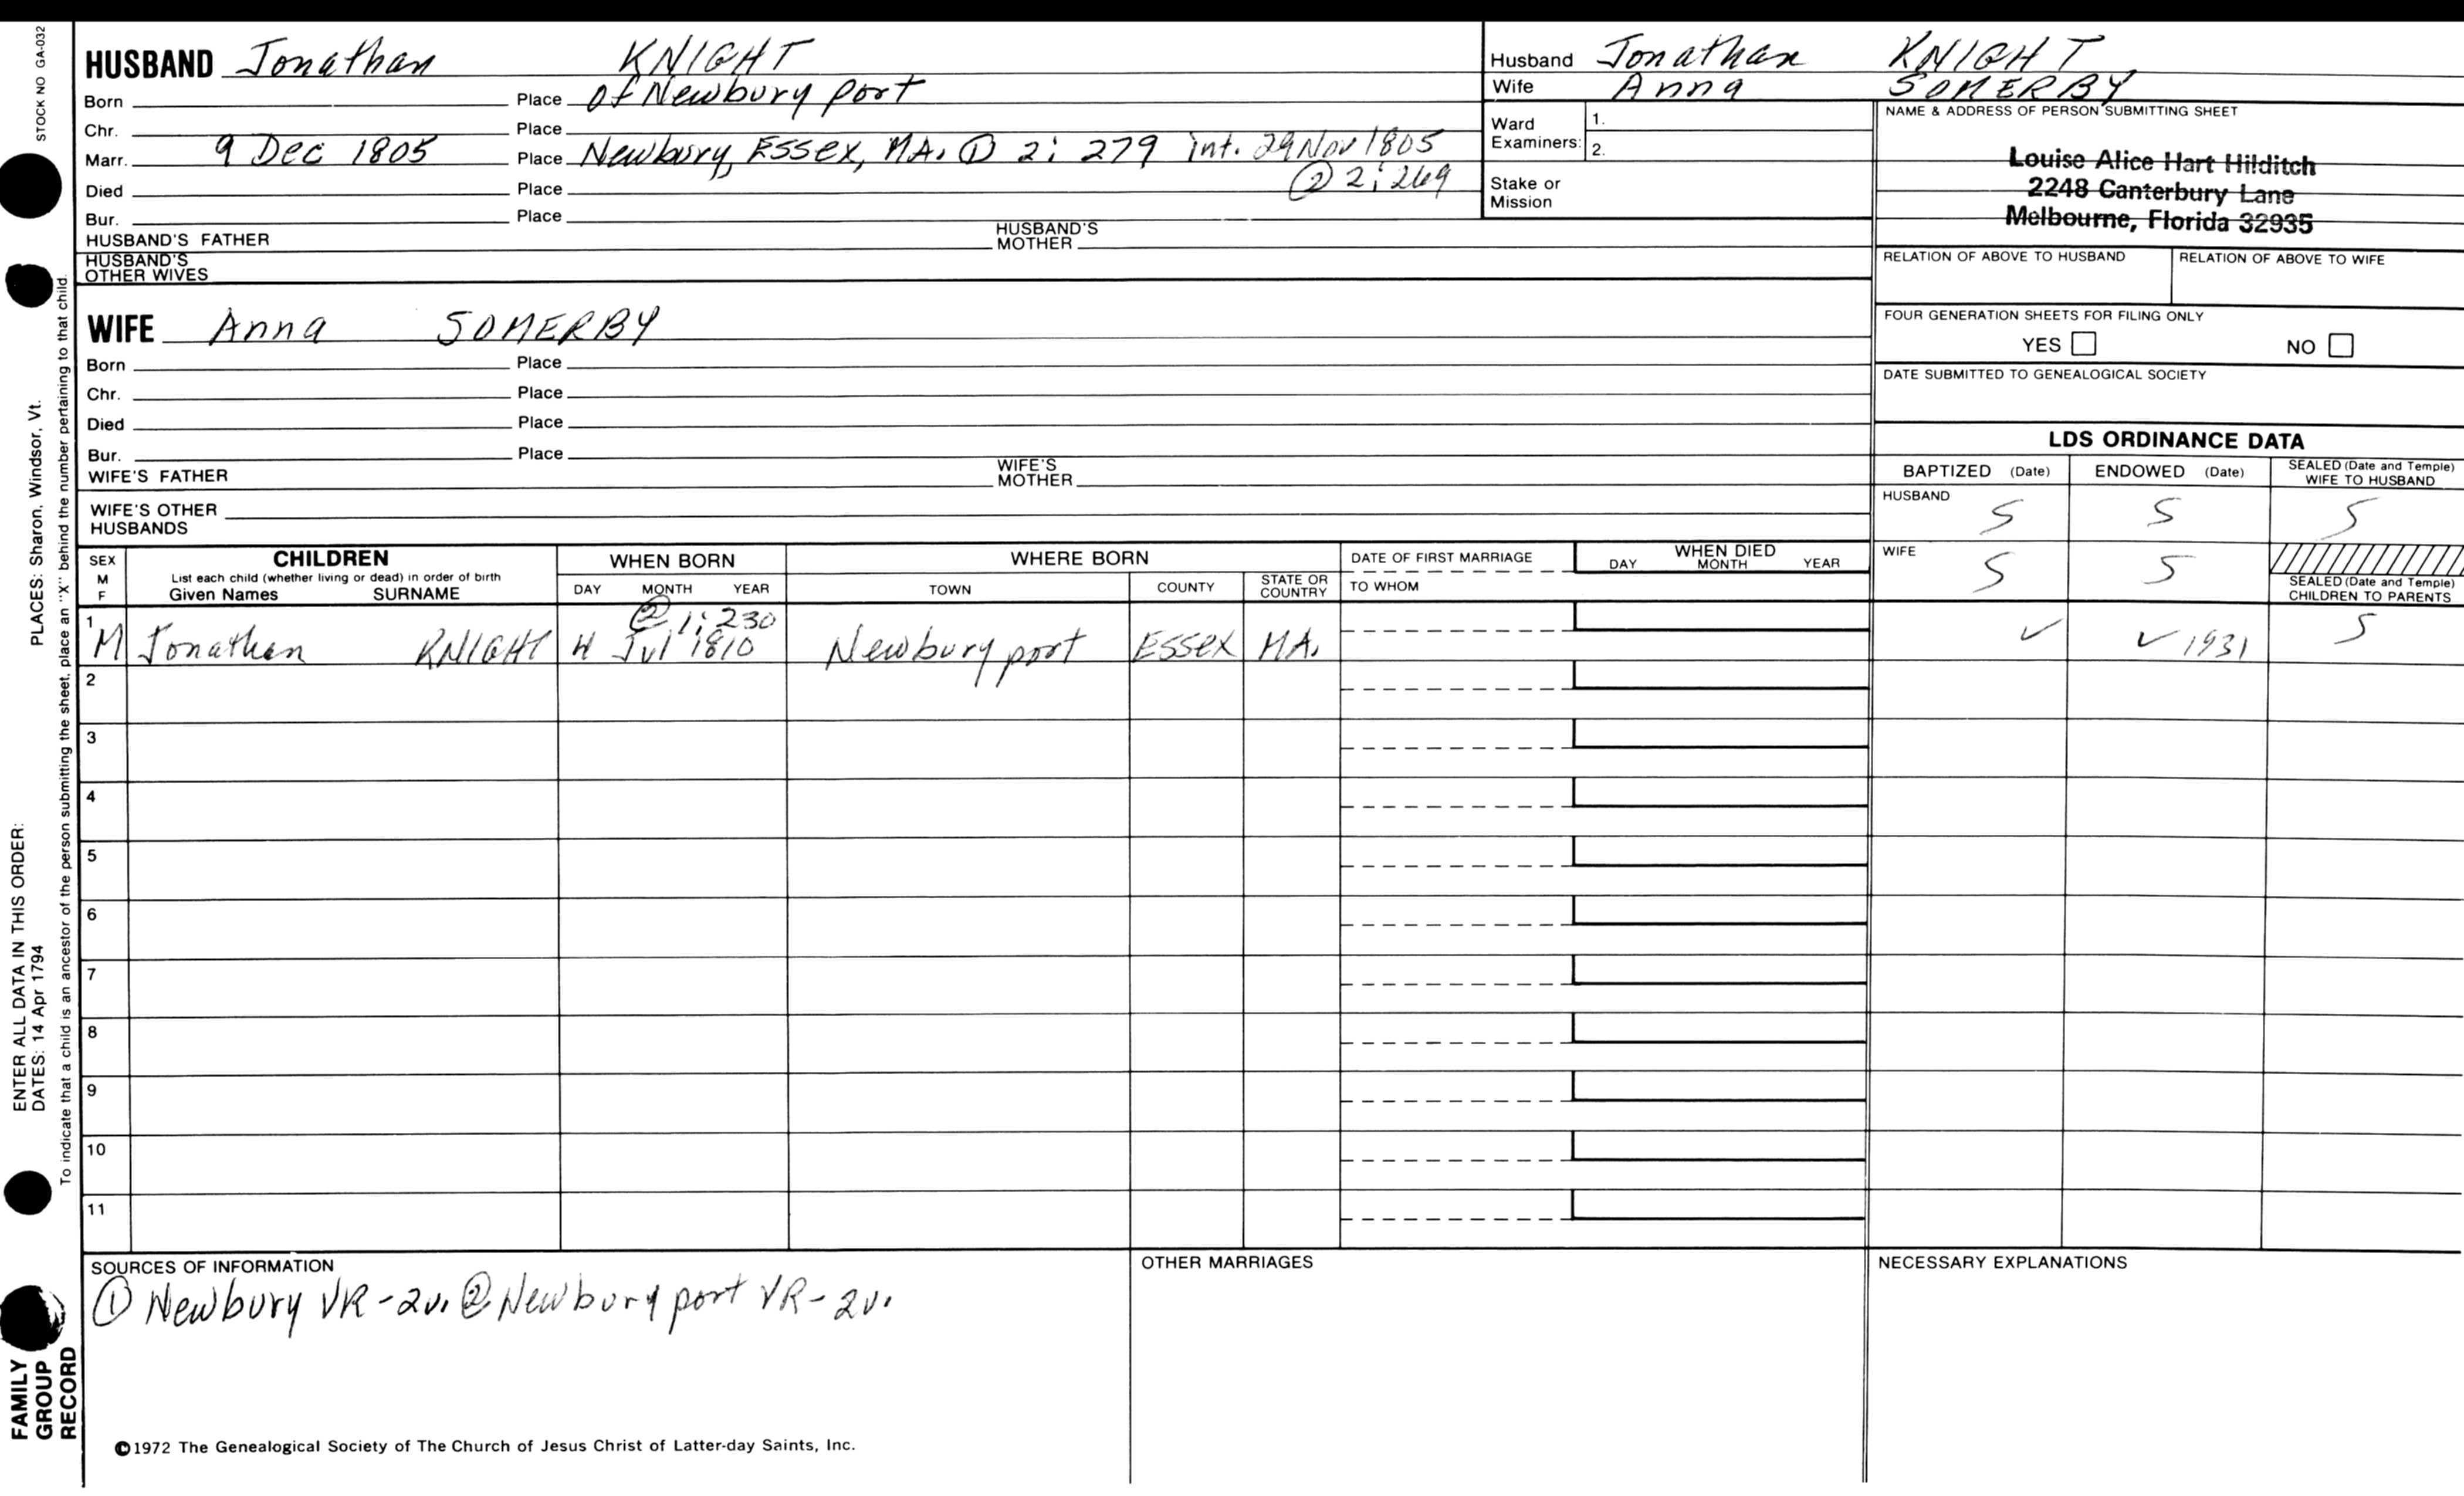 STOCK NO GA-032
HUSBAND Jonathan KNIGHT
Born Place of Newburyport
Chr. Place
Marr. 9 Dec 1805 Place Newbury, Essex, MA. ① 2: 279 int. 29 Nov 1805
② 2: 269
Died Place
Bur. Place
HUSBAND'S FATHER HUSBAND'S MOTHER
HUSBAND'S OTHER WIVES
WIFE Anna SOMERBY
Born Place
Chr. Place
Died Place
Bur. Place
WIFE'S FATHER WIFE'S MOTHER
WIFE'S OTHER HUSBANDS
Husband Jonathan KNIGHT
Wife Anna SOMERBY
Ward Examiners: 1.
2.
Stake or Mission
NAME & ADDRESS OF PERSON SUBMITTING SHEET
Louise Alice Hart Hilditch
2248 Canterbury Lane
Melbourne, Florida 32935
RELATION OF ABOVE TO HUSBAND RELATION OF ABOVE TO WIFE
FOUR GENERATION SHEETS FOR FILING ONLY
YES NO
DATE SUBMITTED TO GENEALOGICAL SOCIETY
LDS ORDINANCE DATA
BAPTIZED (Date) ENDOWED (Date) SEALED (Date and Temple) WIFE TO HUSBAND
HUSBAND S S S
WIFE S S
SEALED (Date and Temple) CHILDREN TO PARENTS
SEX M F
CHILDREN
List each child (whether living or dead) in order of birth
Given Names SURNAME
WHEN BORN
DAY MONTH YEAR
WHERE BORN
TOWN COUNTY STATE OR COUNTRY
DATE OF FIRST MARRIAGE
TO WHOM
WHEN DIED
DAY MONTH YEAR
② 1: 230
1 M Jonathan KNIGHT 4 Jul 1810 Newburyport Essex MA. ✓ ✓ 1931 S
2
3
4
5
6
7
8
9
10
11
SOURCES OF INFORMATION
① Newbury VR-2v. ② Newburyport VR-2v.
OTHER MARRIAGES
NECESSARY EXPLANATIONS
©1972 The Genealogical Society of The Church of Jesus Christ of Latter-day Saints, Inc.
ENTER ALL DATA IN THIS ORDER:
DATES: 14 Apr 1794
PLACES: Sharon, Windsor, Vt.
To indicate that a child is an ancestor of the person submitting the sheet, place an "X" behind the number pertaining to that child.
FAMILY
GROUP
RECORD